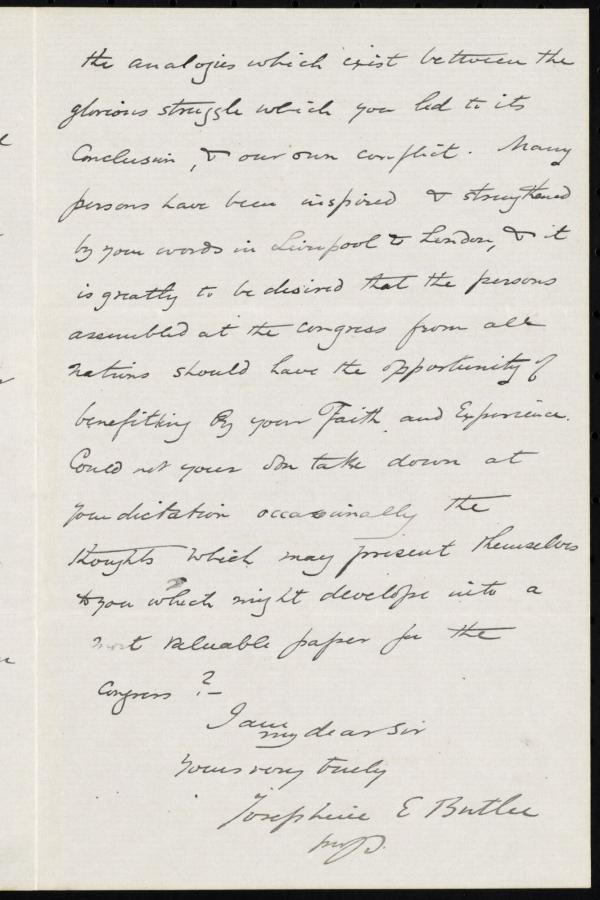 the analogies which exist between the
glorious struggle which you led to its
Conclusion, & our own conflict. Many
persons have been inspired & strengthened
by your words in Liverpool & London, & it
is greatly to be desired that the persons
assembled at the Congress from all
nations should have the opportunity of
benefitting by your Faith and Experience.
Could not your son take down at
your dictation occasionally the
thoughts which may present themselves
to you which might develope into a
most valuable paper for the
Congress ?—
I am
my dear Sir
Yours very truly
Josephine E Butler